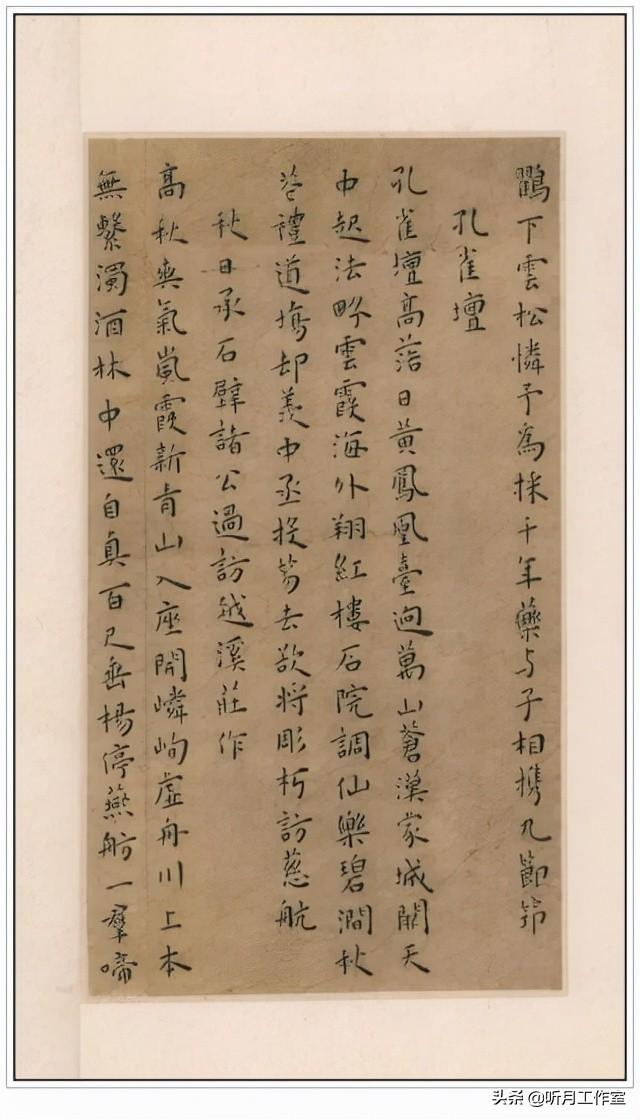 下雲松憐予為採千年藥与子相携九節筇
孔雀壇
孔雀壇高落日黄鳳凰臺迥萬山蒼漢家城闕天
中起法界雲霞海外翔紅樓石院調仙樂碧澗秋
苔禮道塲却羨中丞投劾去欲將彫朽訪慈航
秋日承石壁諸公過訪越溪莊作
高秋爽氣嵐霞新青山入座開嶙峋虛舟川上本
無繫濁酒林中還自真百尺垂楊停燕舫一羣啼
头条 @听月工作室